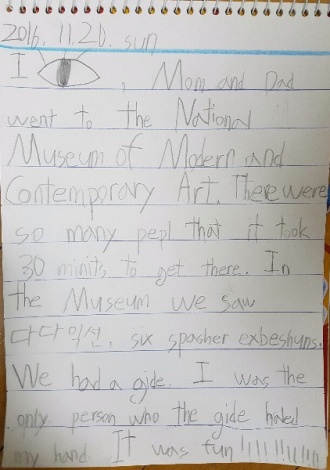 2016. 11. 20. sun
I , Mom and Dad
went to the National
Museum of Modern and
Contemporary Art. There were
so many pepl that it took
30 minits to get there. In
the Museum we saw
다다익선, six spasher exbeshuns.
We had a gide. I was the
only person who the gide holed
my hand It was fun!!!!!!!!!!!